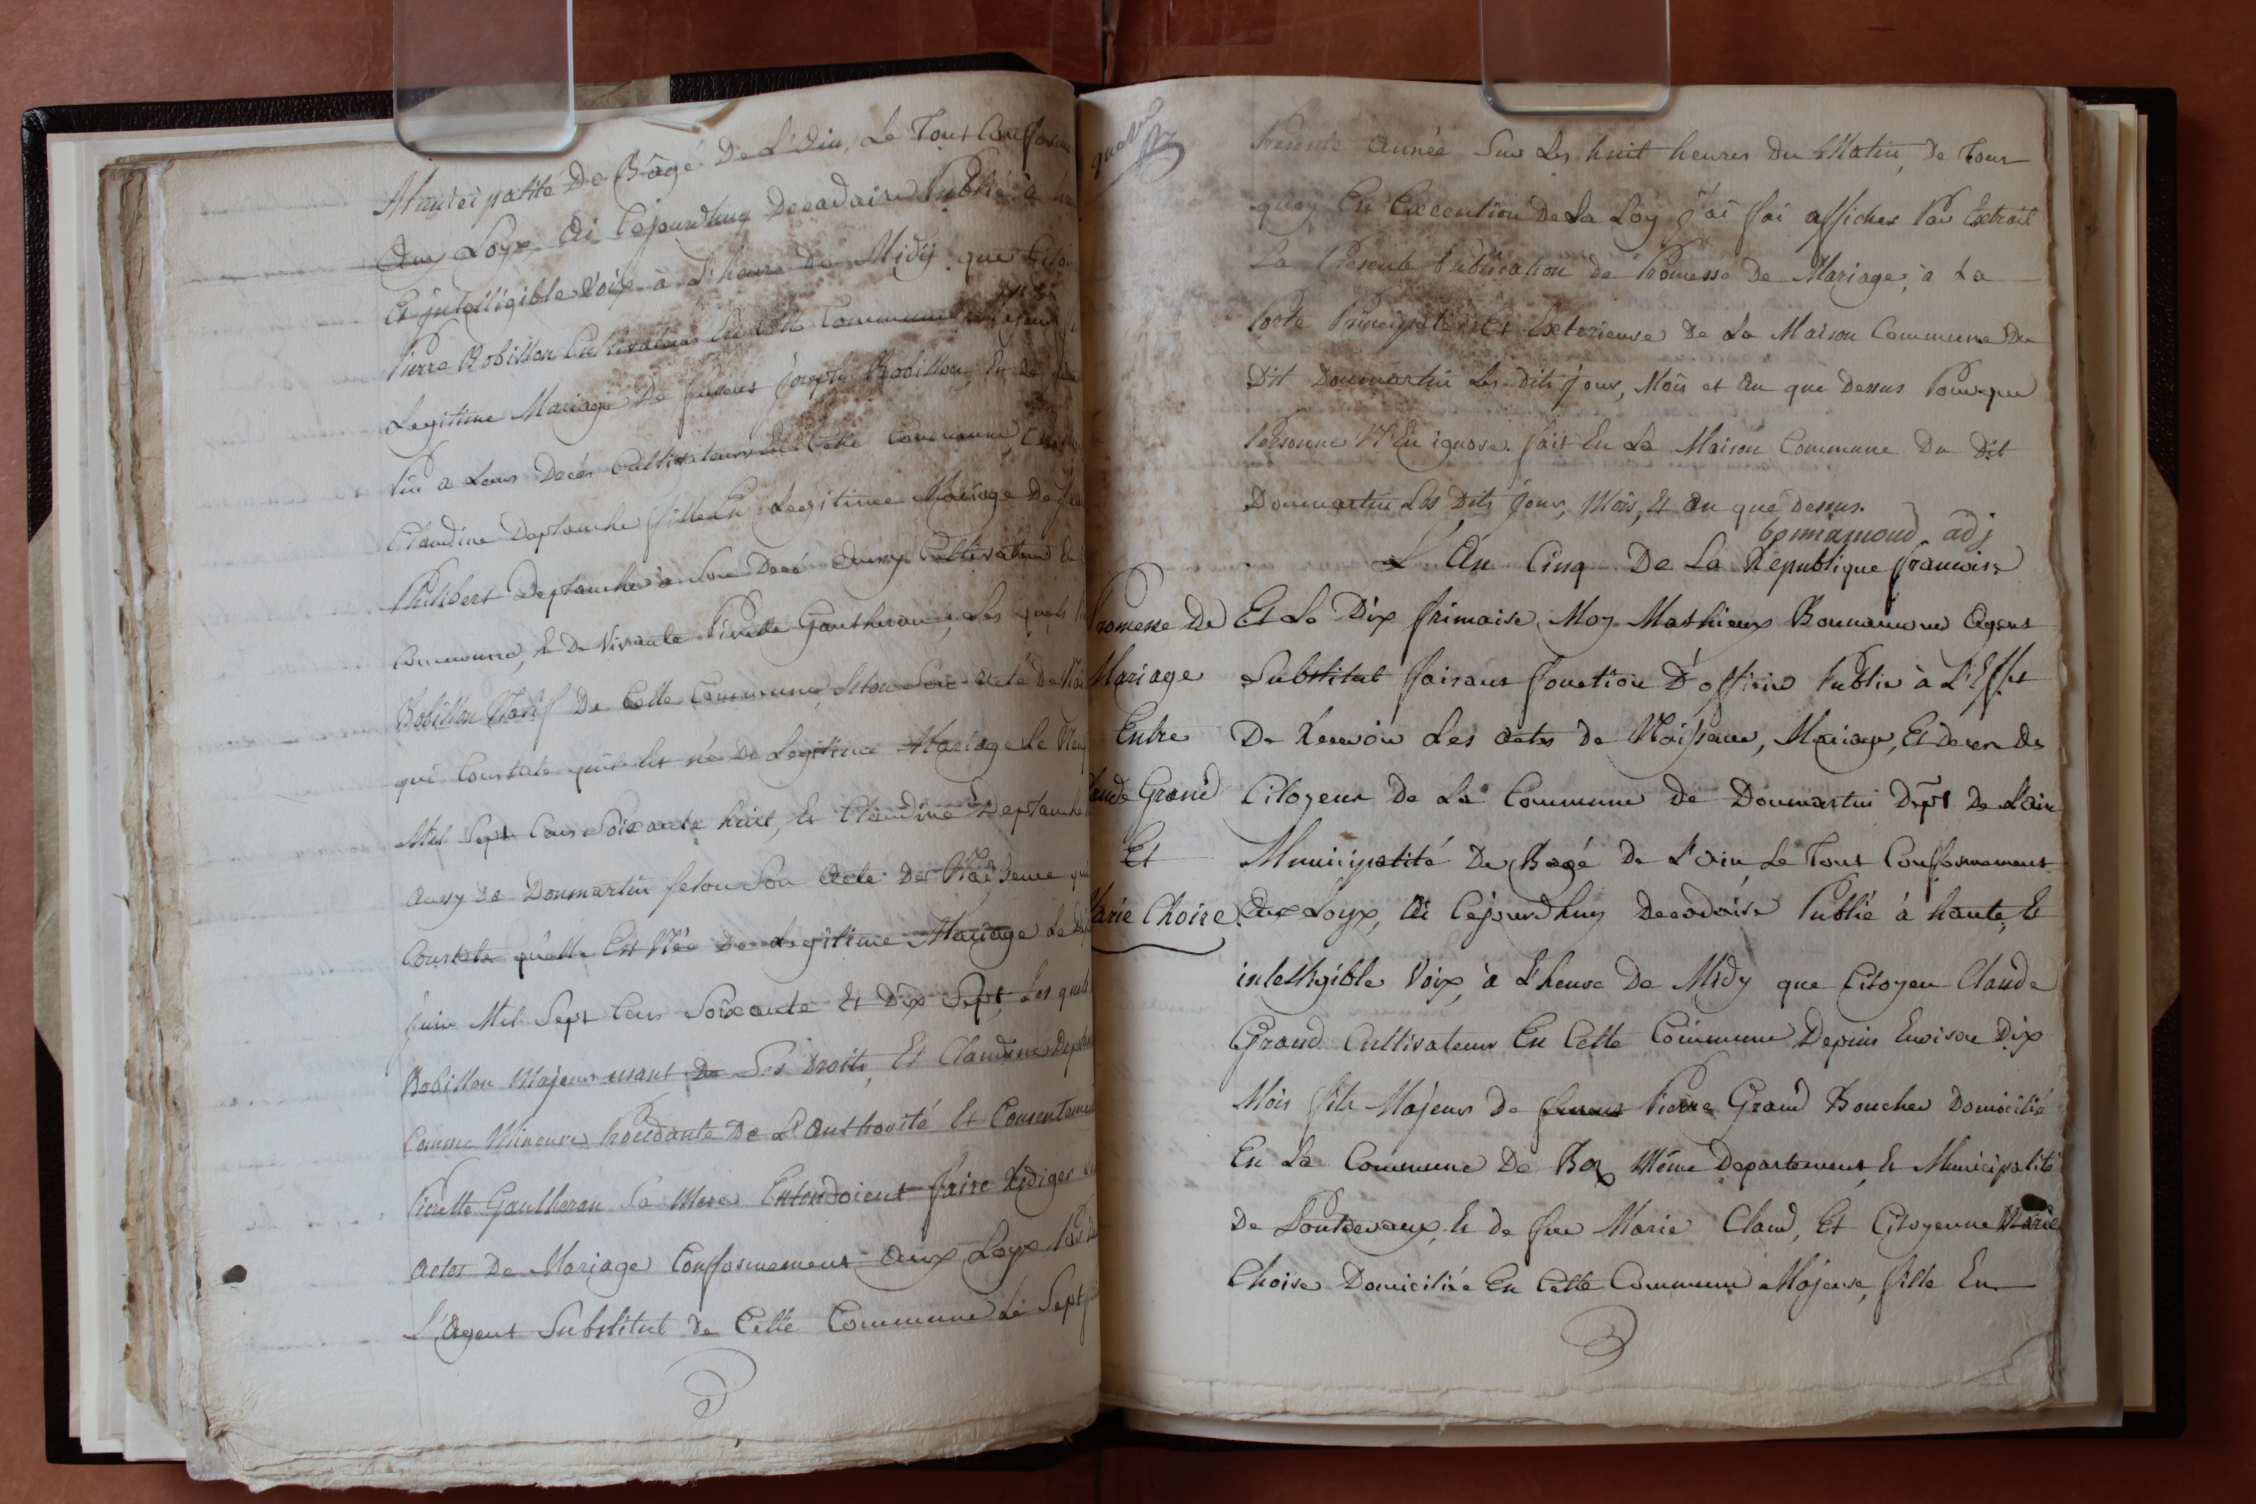 Municipalité De Bâgé De L'Ain, Le Tout Conformement
Aux Loyx, Ai Cejourdhuy Decadaire Publié à haute
Et intelligible Voix à L'heure De Midÿ que Citoyen
Pierre Robillon Cultivateur En Cette Commune
Legitime Mariage De furent Joseph Robillon, Et de
Vin a Leurs Decés Cultivateurs En Cette Commune,
Claudine Deplanche fille En Legitime Mariage De feu
Philibert Deplanche à Son Decé Aussy Cultivateur En
Commune, Et De Vivante Pierrette Gautheran, Les quels
Robillon Natif De Cette Commune, Selon Son Acte De
qui Constate qu'il Est né De Legitime Mariage Le
Mil Sept Cens Soixante huit, Et Claudine Deplanche
Aussy de Donmartin selon Son Acte De Naissence qui
Constate qu'elle Est Née De Legitime Mariage Le
juin Mil Sept Cens Soixante Et Dix Sept, Les quels
Robillon Majeur usant De Ses Droits, Et Claudine
Comme Mineure Procédante De L'Authorité Et Consentement
Pierrette Gautheran Sa Mere Entendoient faire Rediger
Actes De Mariage Conformement Aux Loyx Par
L'Agent Substitut de Cette Commune Le Sept
Présente Année Sur Les huit heures Du Matin, De Tour
quoy En Execution De La Loy j'ai fai afficher Par Extrait
La Présente Publication de Promesse De Mariage, à La
Porte Principale Et Exterieure De La Maison Commune Du
Dit Donmartin Les Dits jour, Mois et An que Dessus Pour que
Personne N'En ignore. fait En La Maison Commune Du Dit
Donmartin Les Dits jour, Mois, Et An que Dessus.
bonnamoud adj
L'An Cinq De La Republique francoise
Promesse De
Mariage
Entre
Claude Grand
Et
Marie Choire
Et Le Dix frimaire, Moy Mathieux Bonnamoud Agent
Substitut faisant fonction D'officier Public à L'Effet
De Recevoir Les Actes de Naissance, Mariage, Et Deces Des
Citoyens De La Commune De Donmartin Dept De L'ain
Municipalité De Bagé De L'Ain, Le Tout Conformement
Aux Loyx, Ai Cejourdhuy Decadaire Publié à haute, Et
intelligible Voix, à L'heure De Midy que Citoyen Claude
Grand Cultivateur En Cette Commune Depuis Environ Dix
Mois fils Majeur De furent Pierre Grand Boucher Domicilié
En La Commune De Boz Même Departement, Et Municipalité
De Pontdevaux, Et de feu Marie Claud, Et Citoyenne Marie
Choire Domiciliée En Cette Commune Majeure, fille En